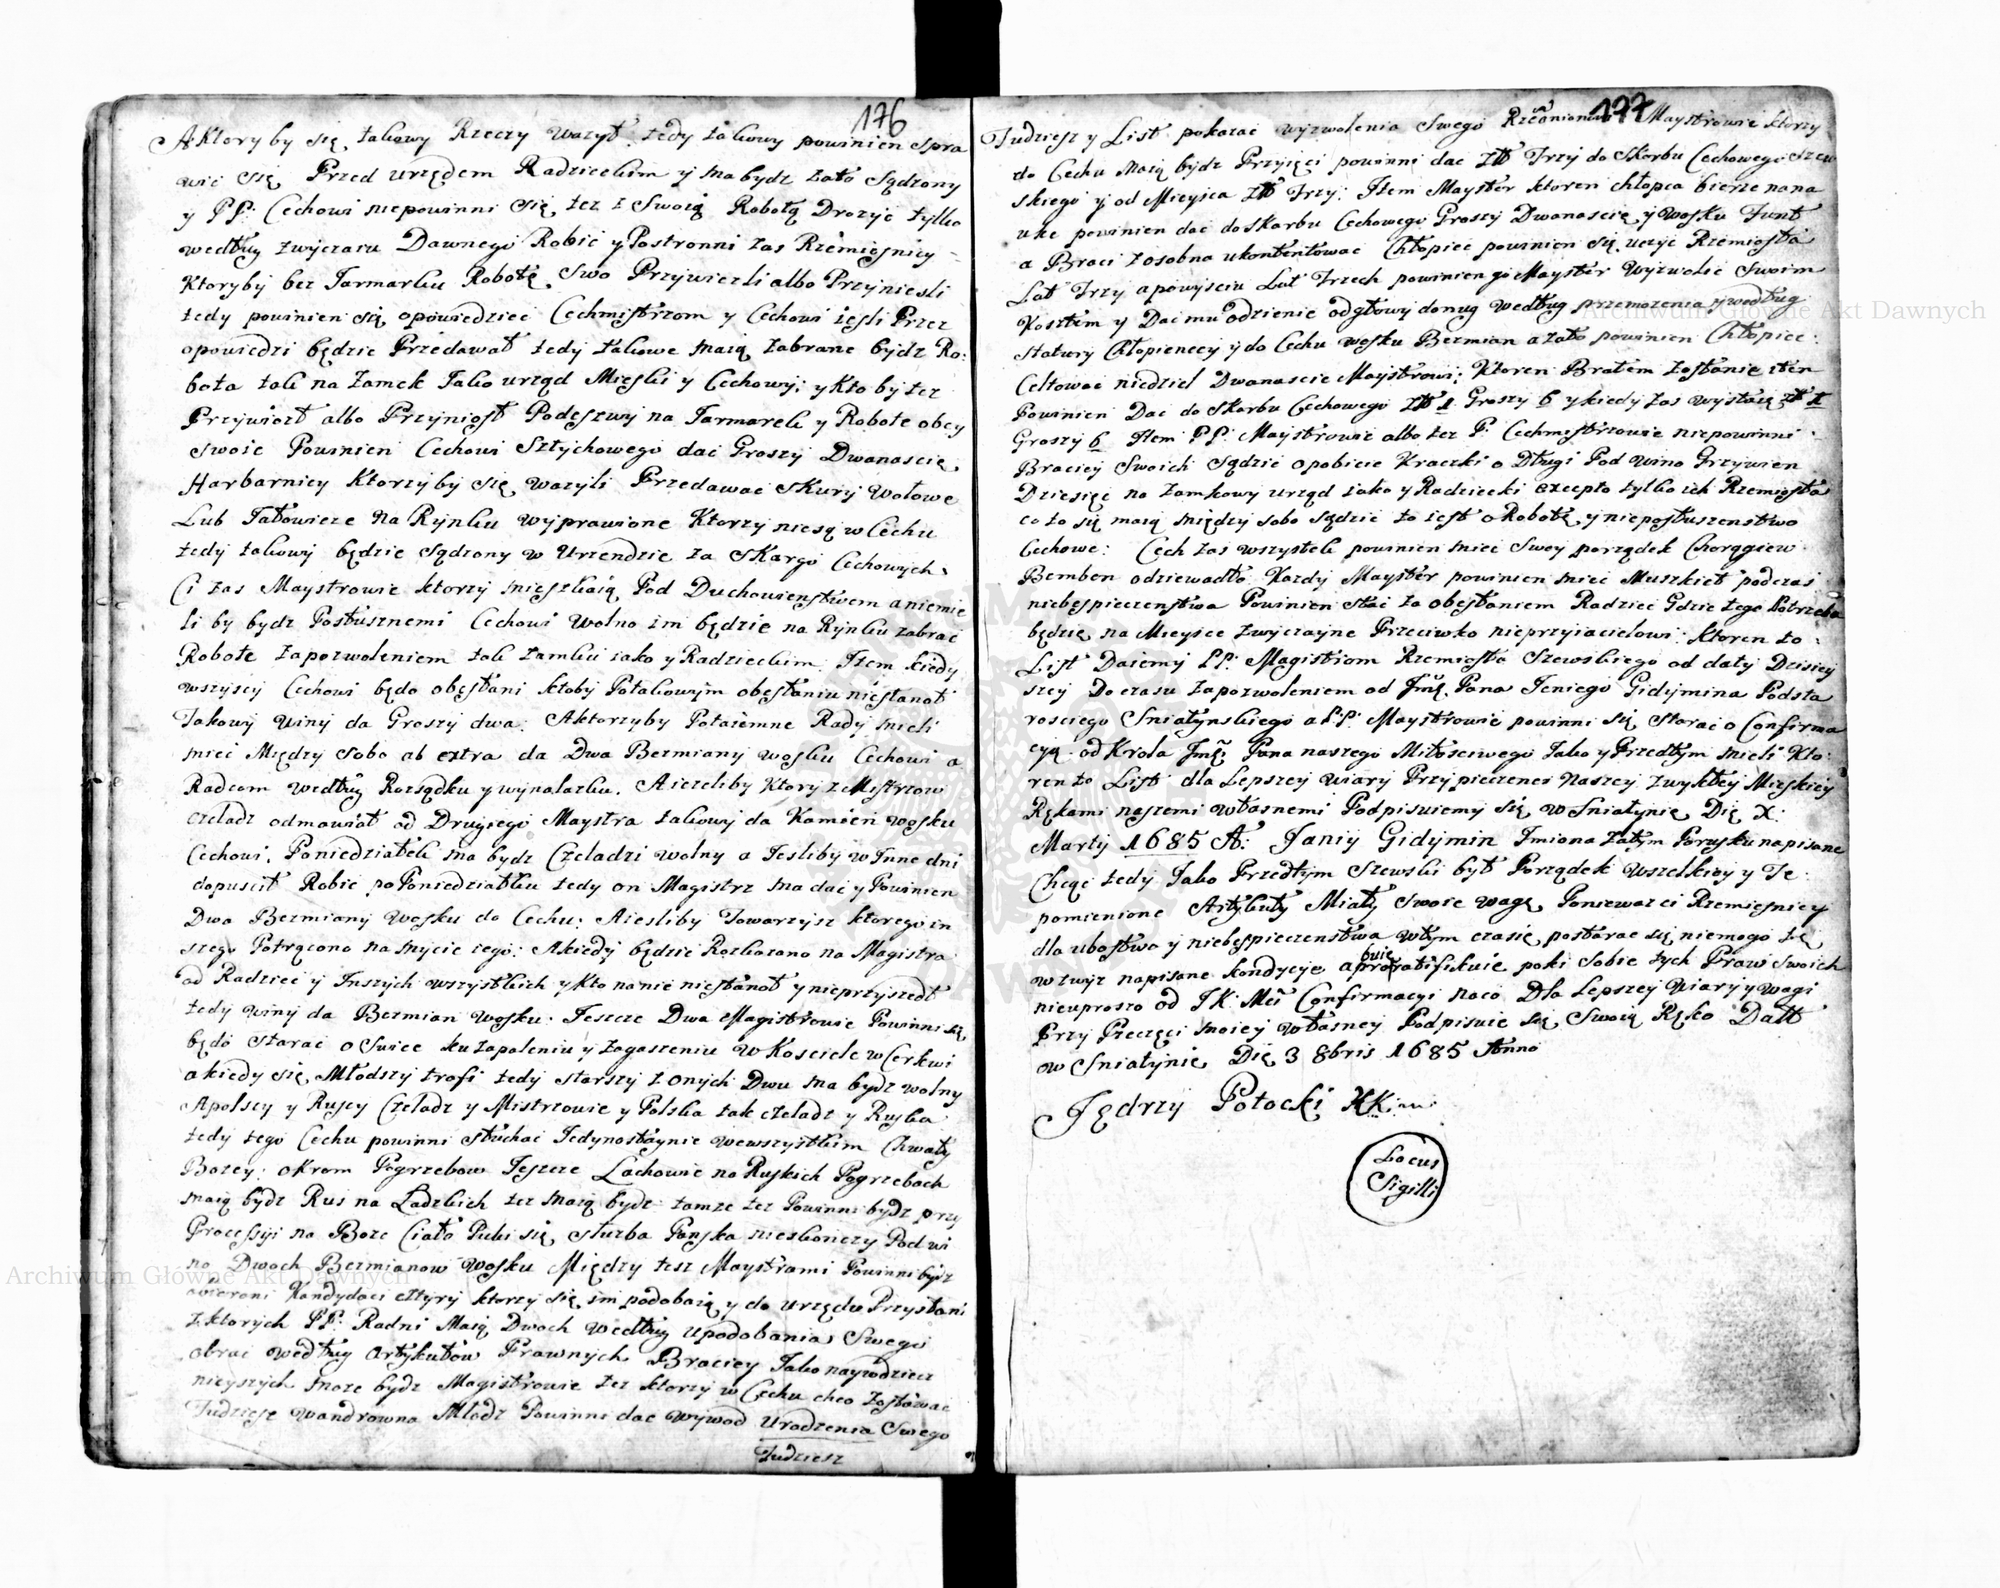 176
A Ktory by się takowy Rzeczy Wazył tedy takowy powinien spra
wić się Przed urzędem Radzieckim y ma bydz zato Sądzony
y PP: Cechowi niepowinni się tez z Swoią Robotą Drozyć tylko
według zwyczaiu Dawnego Robić y Postronni zas Rzemięsnicy
Ktoryby bez Jarmarku Robotę Swo Przywiezli albo Przyniesli
tedy powinien się opowiedziec Cechmistrzom y Cechowi iesli Przez
opowiedzi będzie Przedawał tedy takowe maią zabrane bydz Ro:
bota tak na Zamek Jako urząd Mieyski y Cechowy: y Kto by tez
Przywiozł albo Przyniosł Podeszwy na Jarmarek y Robote obcy
swoie Powinien Cechowi Sztychowego dac Groszy Dwanascie
Harbarnicy Ktorzyby się wazyli Przedawac Skury Wołowe
Lub Jałowicze Na Rynku wyprawione Ktorzy niesą w Cechu
tedy takowy będzie sądzony w Urzendzie za Skargo Cechowych
Ci zas Maystrowie ktorzy mieszkaią Pod Duchowienstwem a niemie
li by bydz Posłusznemi Cechowi Wolno im będzie na Rynku zabrać
Robote Zapozwoleniem tak Zamku iako y Radzieckim: Item kiedy
wszyscy Cechowi będo obęsłani ktoby Potakowym obęsłaniu niestanoł
Takowy Winy da Groszy dwa: A ktorzyby Potaiemne Rady mieli
miec Między Sobo ab extra da Dwa Bezmiany wosku Cechowi a
Radcom według Rozsądku y wynalazku. A iezeliby Ktory z Mistrzow
czeladz odmawiał od Drugiego Maystra takowy da Kamień wosku
Cechowi. Poniedziałek ma bydz Czeladzi wolny a Jesliby w Inne dni
dopuscił Robic po Poniedziałku tedy on Magistrz ma dać y Powinien
Dwa Bezmiany wosku do Cechu: A iesliby Towarzysz ktorego in
szego Potrącono na mycie iego: A kiedy będzie Rozkazano na Magistra
od Radziec y Inszych wszystkich y Kto nanie niestanoł y nieprzyszedł
tedy winy da Bezmian wosku: Jeszcze Dwa Magistrowie Powinni się
będo starac o Swiece ku zapaleniu y zagaszeniu w Kosciele w Cerkwi
a kiedy się Młodszy trafi tedy starszy z onych Dwu ma bydz wolny
Apolscy y Ruscy Czeladz y Mistrzowie y Polska tak czeladz y Ruska
tedy tego Cechu powinni słuchac Jedynostaynie wewszystkim Chwały
Bozey: okrom Pogrzebow Jeszcze Lachowie na Ruskich Pogrzebach
maią bydz Rus na Ladzkich tez maią bydz tamze tez Powinni bydz przy
Processyi na Boze Ciało Puki się słuzba Panska nieskonczy Pod wi
no Dwoch Bezmianow wosku Między tesz Maystrami Powinni bydz
obierani Kandydaci cztyry ktorzy się im podobaią y do urzędu Przysłani
z ktorych PP: Radni Maią Dwoch według upodobania Swego
obrac według Artykułow Prawnych Braciey Jako nayrodziecz
nieyszych moze bydz Magistrowie tez ktorzy w Cechu chco zostawac
Tudziesz wandrowna Młodz Powinni dac wywod Urodzenia Swego
Tudziesz
177
Tudziesz y List pokazac wyzwolenia Swego Maystrowie ktorzy
do Cechu Maią bydz Przyięci powinni dac Zł Trzy do Skarbu Cechowego Szew
skiego y od Mieysca Zł Trzy: Item Mayster ktoren chłopca bierze nana
uke powinien dac do Skarbu Cechowego Groszy Dwanascie y wosku Funt
a Braci zosobna ukontentowac Chłopiec powinien się uczyc Rzemiosła
Lat Trzy a powyściu Lat Trzech powinien go Mayster Wyzwolic Swoim
Kosztem y Dac mu odzienie od głowy do nug według przemozenia y według
statury Chłopiencey y do Cechu wosku Bezmian a zato powinien Chłopiec
Celtowac niedziel Dwanascie Maystrowi: Ktoren Bratem Zostanie ten
Powinien Dac do Skarbu Cechowego Zł 1 Groszy 6 y kiedy zas wystąi Zł 1
Groszy 6 Item PP: Maystrowie albo tez P: Cechmistrzowie niepowinni
Braciey Swoich sądzic o pobicie Kraczki o Długi Pod wino Grzywien
Dziesięc na Zamkowy urząd iako y Radziecki excepto tylko ich Rzemiosła
co to się maią między sobo sądzic to iest o Robotę y nieposłuszenstwo
Cechowe: Cech zas wszystek powinien miec Swey porządek Chorągiew
Bemben odziewadło Kazdy Mayster powinien miec Muszkiet podczas
niebespieczenstwa Powinien stać za obesłaniem Radziec Gdzie tego Potrzeba
będzie na Mieysce zwyczayne Przeciwko nieprzyiacielowi: ktoren to
List Daiemy PP: Magistrom Rzemiosła Szewskiego od daty Dzisiey
szey Do czasu Zapozwoleniem od Jmę. Pana Jeniego Gidymina Podsta
rosciego Sniatynskiego a PP: Maystrowie powinni się starac o Confirma
cyą od Krola Jmę Pana naszego Miłosciwego Jako y Przedtym mieli Kto:
ren to List dla Lepszey wiary Przy pieczenci Naszey zwykłey Mieskiey
Rękami naszemi własnemi Podpisuiemy się w Sniatynie Die X:
Marty 1685 A: Janiy Gidymin Imiona zatym Porzsku napisane
Chcąc tedy Jako Przedtym Szewski był Porządek wszelkiey y Te:
pomienione Artykuły Miały Swoie wagę Poniewaz ci Rzemięsnicy
dla ubostwa y niebespieczenstwa wtym czasie postarac się niemogo te
wzwyz napisane kondycye aprobuię ratifikuie poki Sobie tych Praw Swoich
nieuproszo od JK: Mci Confirmacyi naco Dla Lepszey Wiary y wagi
Przy Pieczęci moiey własney Podpisuie się Swoią Ręko Datt
w Sniatynie Die 3 8bris 1685 Anno
Jędrzy Potocki KK
Locus
Sigilli
Archiwum Główne Akt Dawnych
Archiwum Główne Akt Dawnych